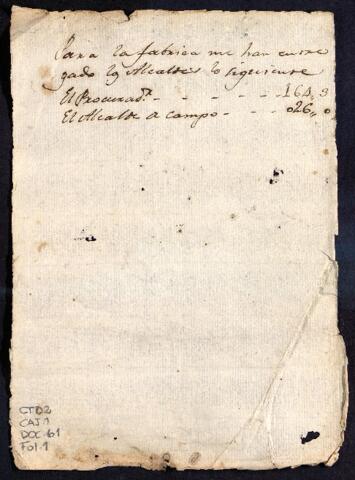 Para la fabrica me han entre
gado los Alcaldes lo siguiente
El Procurad.r - - - - - - 164,, 3
El Alcalde a campo - - - 026,, 0
CTD2
CAJ 1
DOC 61
Fol. 1